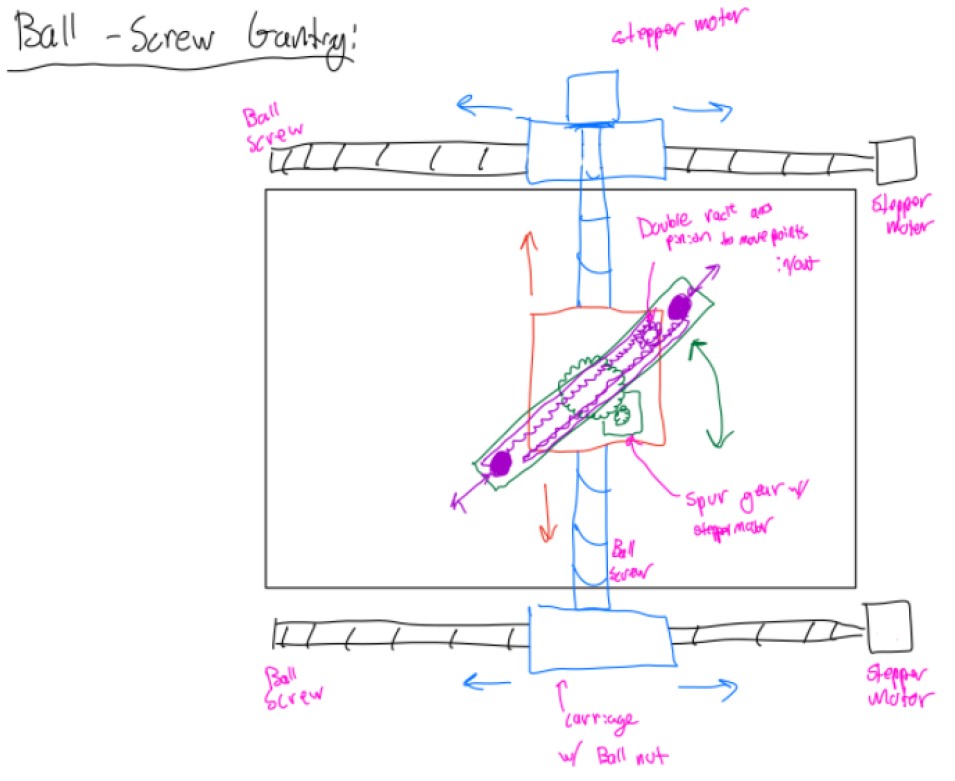 Ball - Screw Gantry:
stepper motor
Ball
Screw
Stepper
motor
Double rack and
pinion to move points
in/out
Spur gear w/
stepper motor
Ball
Screw
Ball
Screw
Stepper
Motor
Carriage
w/ Ball nut